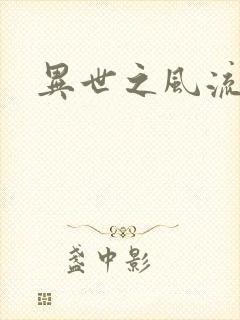 異世之風流
盞中影